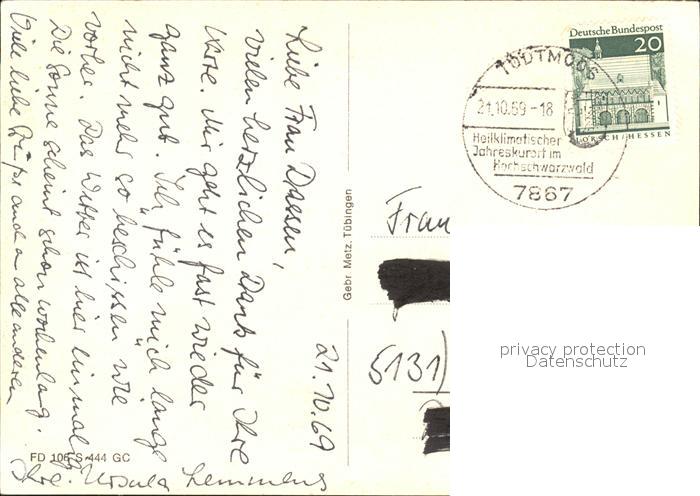 21.10.69
Liebe Frau Daesen,
vielen herzlichen Dank für Ihre
Karte. Mir geht es fast wieder
ganz gut. Ich fühle mich lange
nicht mehr so beschissen wie
vorher. Das Wetter ist hier einmalig.
Die Sonne scheint schon wochenlang.
Viele liebe Grüße auch an alle anderen
Ihre Ursula Lemmens
FD 106 S 444 GC
Gebr. Metz, Tübingen
Deutsche Bundespost
20
LORSCH/HESSEN
TODTMOOS
21.10.69-18
Heilklimatischer
Jahreskurort im
Hochschwarzwald
7867
Frau
5131)
privacy protection
Datenschutz